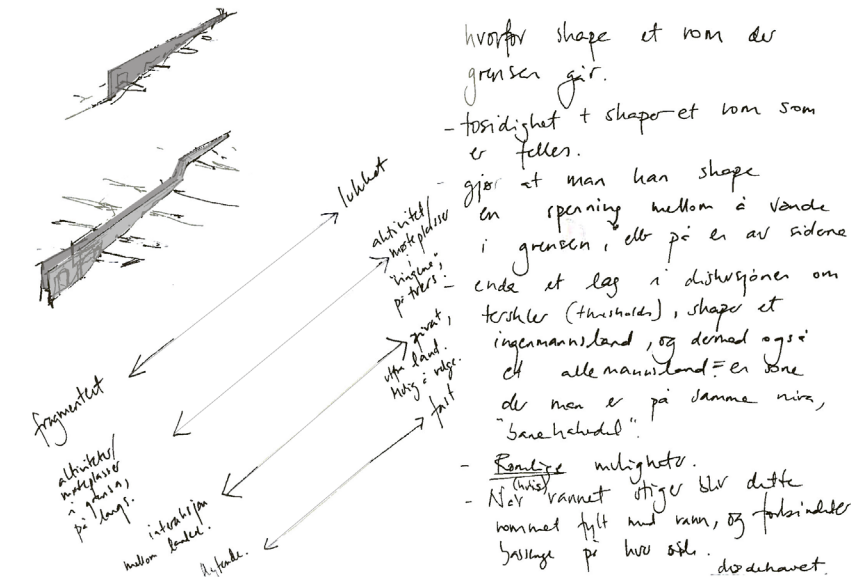 hvorfor shape et rom der
grensen går.
- tosidighet + shaper et rom som
er felles.
- gjør at man kan shape
en spenning mellom å vande
i grensen, ell på en av sidene
- enda et lag i diskusjonen om
terskler (thresholds), shaper et
ingenmannsland, og dermed også
et allemannsland = en sone
der man er på samme nivå,
- Romlige muligheter.
(hvis)
- Når vannet stiger blir dette
rommet fylt med vann, og forbinder
på hver side.
dødehavet.
lukket
aktivitet/
møteplasser
i
"vingene"
på tvers,
privat,
land.
å velge.
fast
fragmentert
aktiviteter/
møteplasser
i grensa,
på langs.
interaksjon
mellom landene.
flytende.